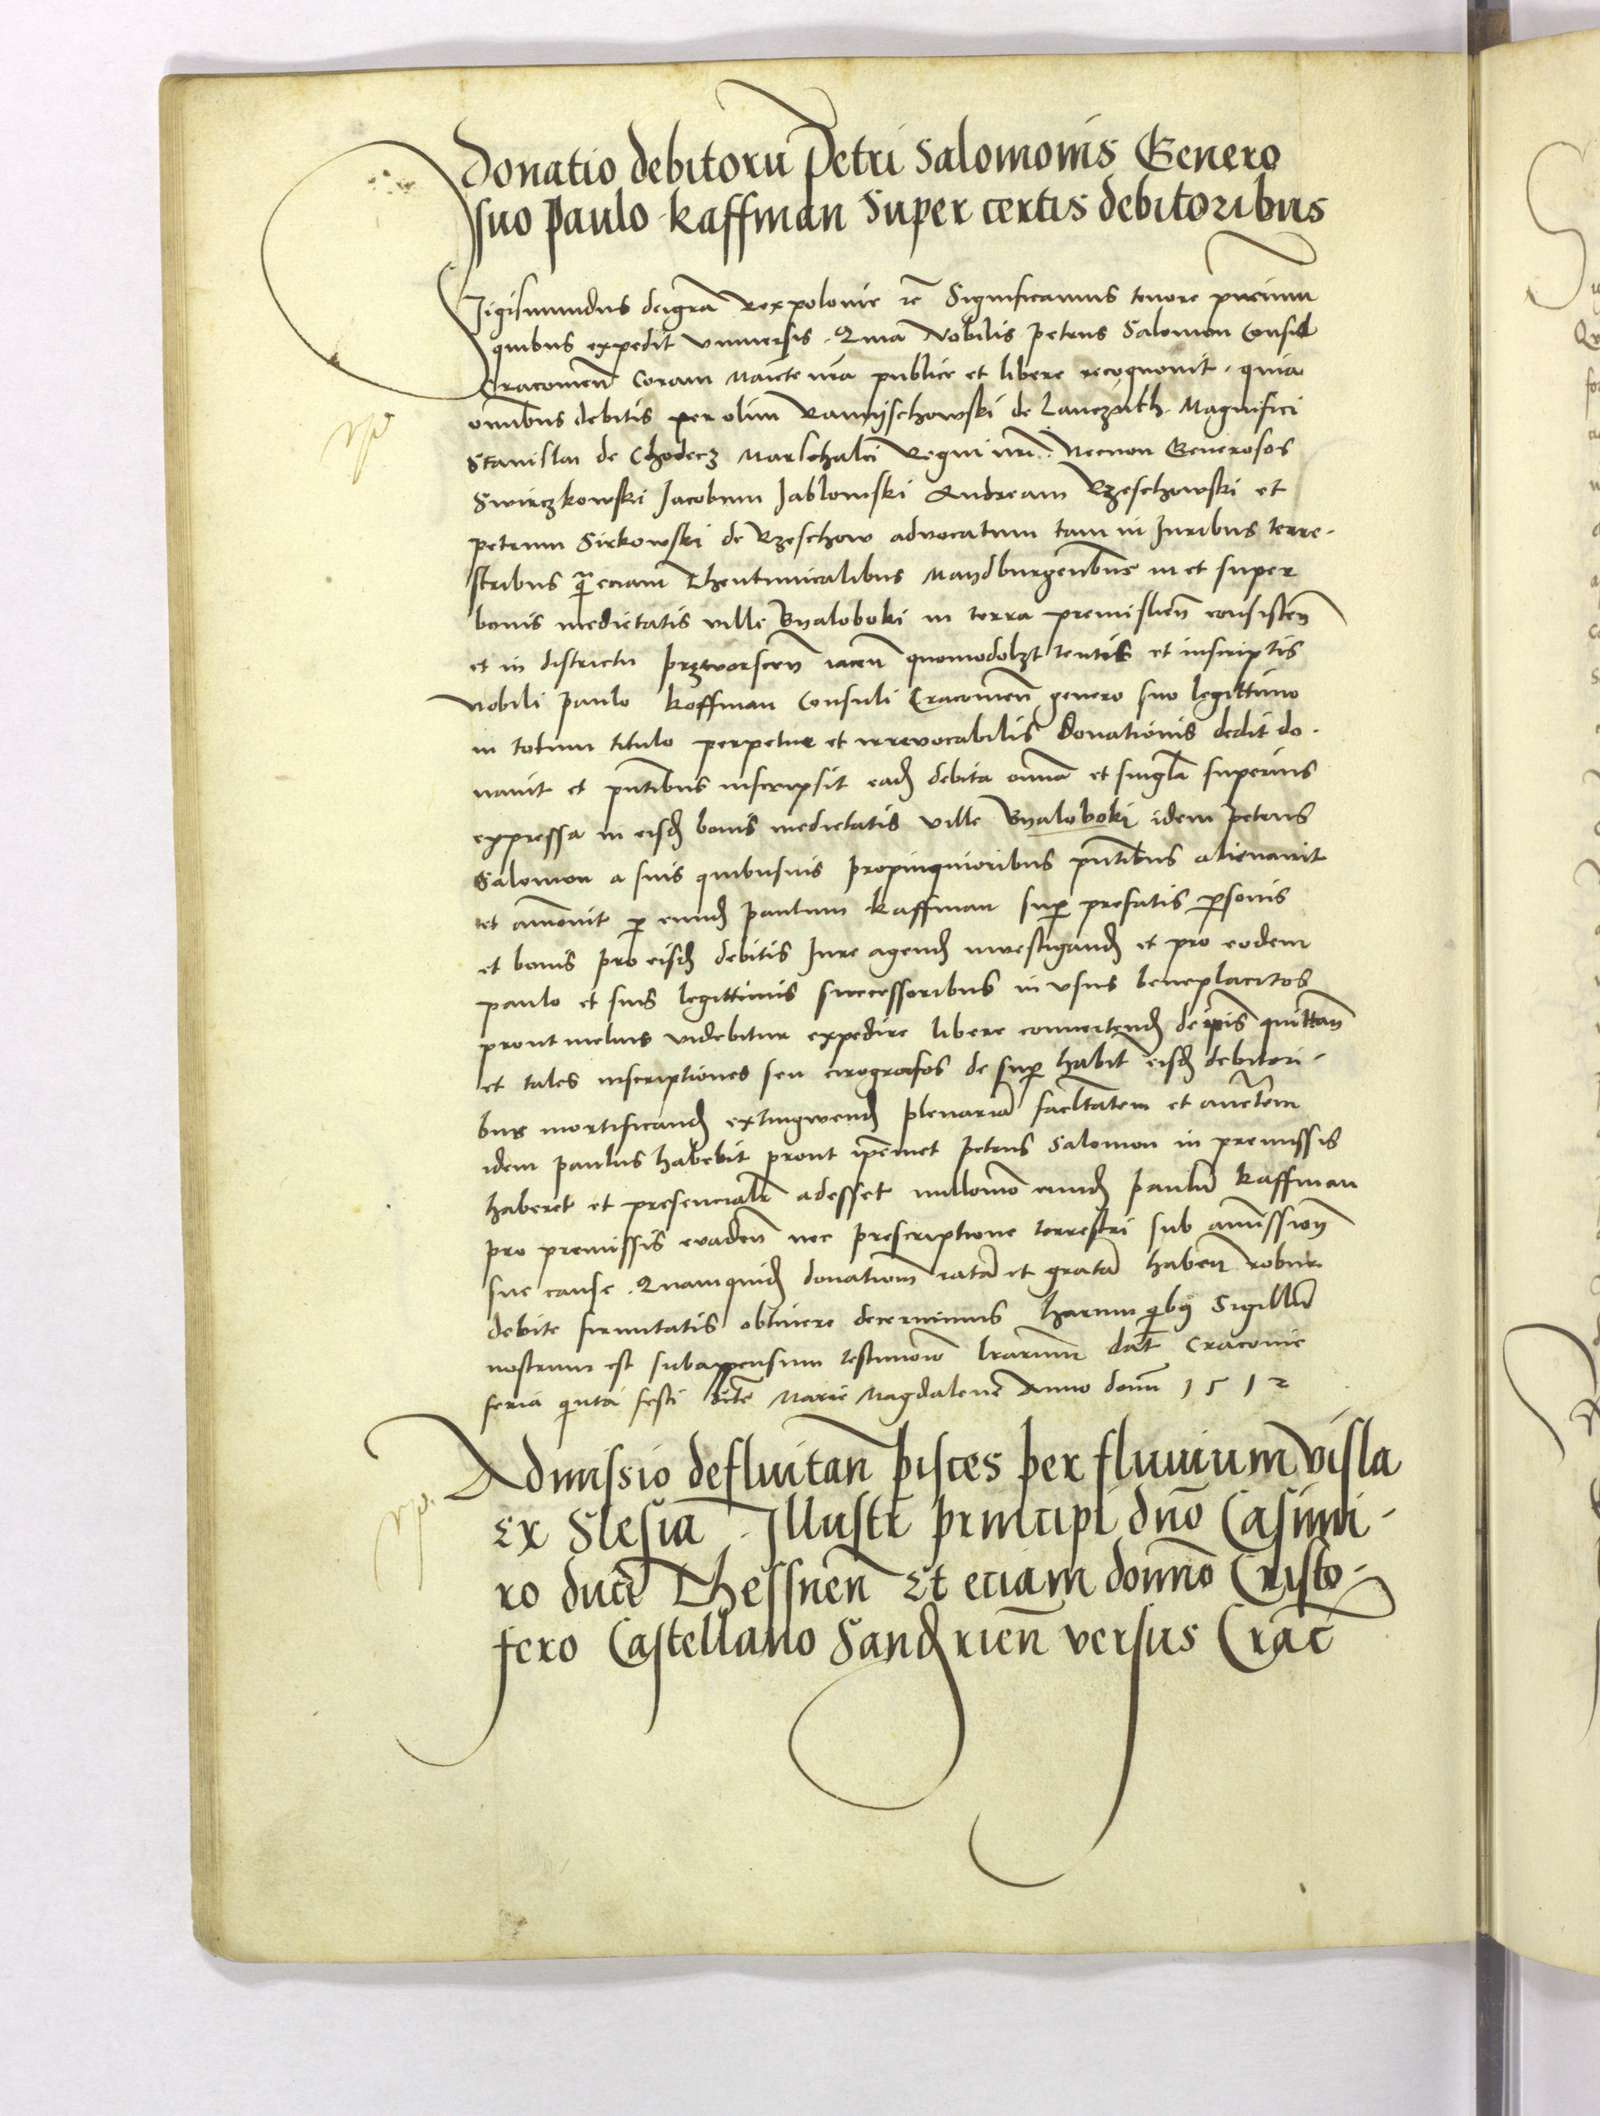 Donatio debitoru Petri Salomonis Genero
suo Paulo Kaffman Super certis debitoribus
Sigismundus dei gra Rex polonie rc Significamus tenore pncium
quibus expedit vniuersis. Quia Nobilis Petrus Salomon Consul
Cracouien Coram Maiestate nra publice et libere recognouit. quia
omibus debitis per olim de Lanczuth. Magnifici
Stanislai de Chodecz Marschalci Regni nri. Necnon Generosos
Swirczkowski Jacobum Jablonski Andream Rzeschowski et
petrum Sirkowski de Rzeschow advocatum tam in Juribus terre-
stribus q eciam Theutunicalibus Maydburgensibus in et super
bonis medietatis ville Byaloboki in terra premislien consisten
et in districtu przeworscen iacen quomodolzt tentis et inscriptis
Nobili Paulo Koffman Consuli Cracouien genero suo legittimo
in totum titulo perpetue et irreuocabilis Donationis dedit do-
nauit et pntibus inscripsit eadem debita omnia et singla superius
expressa in eisdem bonis medietatis ville Byaloboki idem Petrus
Salomon a suis quibusuis propinquioribus pntibus alienauit
et amouit p eundem Paulum Kaffman sup prefatis psonis
et bonis pro eisdem debitis Jure agendi inuestigandi et pro eodem
paulo et suis legittimis successoribus in vsus beneplacitos
prout melius videbitur expedire libere conuertendi de ipis quittan
et tales inscriptiones seu cirografos de sup habit eisdem debitori-
bus mortificandi extingwendi plenariam facultatem et
idem paulus habebit prout ipemet Petrus Salomon in premissis
haberet et presencialr adesset nullomo eundem paulu Kaffman
pro premissis euaden nec prescriptione terrestri sub amission
sue cause. Quamquidem donationem ratam et gratam haben robur
debite firmitatis obtinere decernimus harum qbus Sigillum
nostrum est subappensum testimonio lrarum dat Cracouie
feria quinta festi Marie Magdalene Anno domini 1512
Admissio defluitan pisces per fluuium Visla
Ex Slesia. Illustri principi dno Casimi-
ro duci Thessnen Et eciam domno Cristo-
fero Castellano Sandrien versus Crac